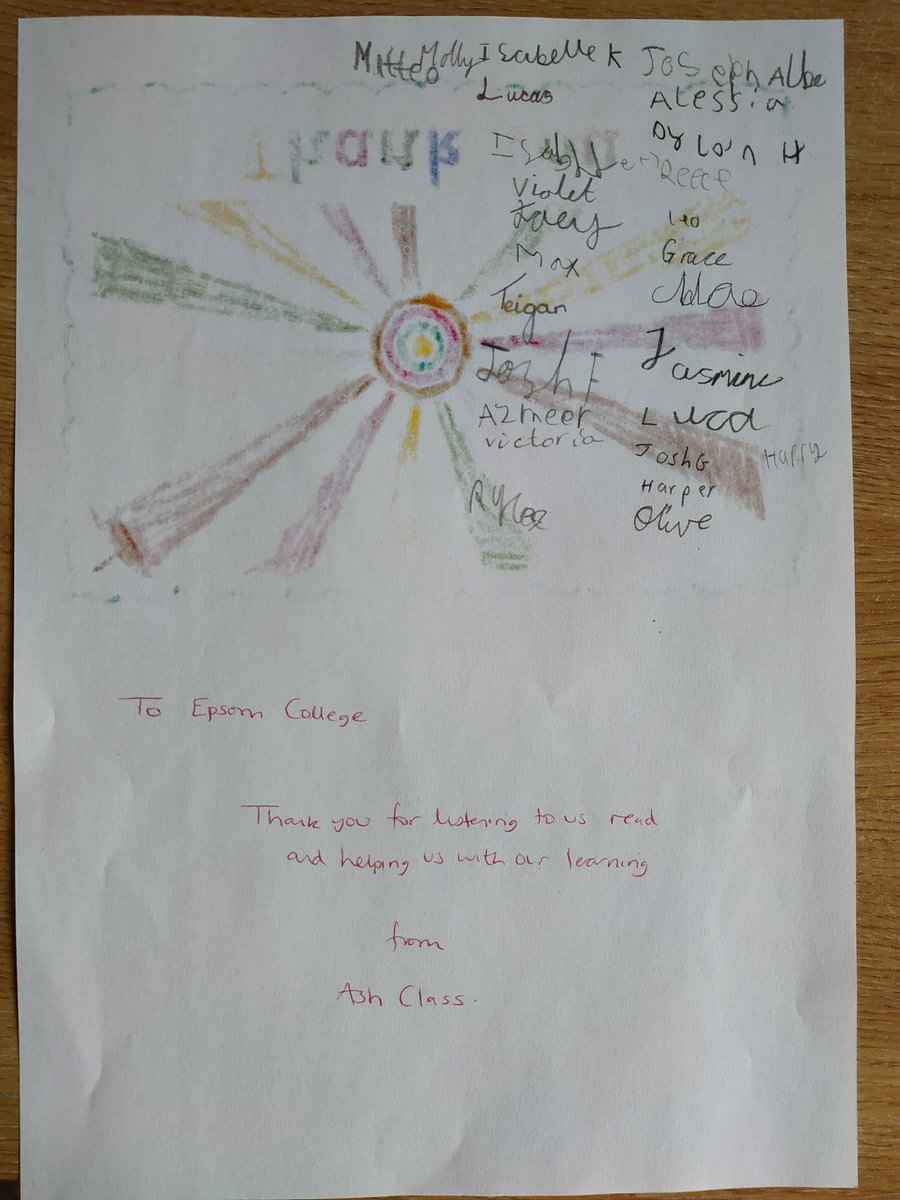 Matteo Molly Isabelle K Joseph Albe
Lucas Alessia
Thank
Dylan H
Reece
Violet
Leo
Max Grace
Teigan Chloe
Josh F Jasmine
Azmeer Luca
Victoria Josh G Harry
Harper
Rylee Olive
To Epsom College
Thank you for listening to us read
and helping us with our learning
from
Ash Class.